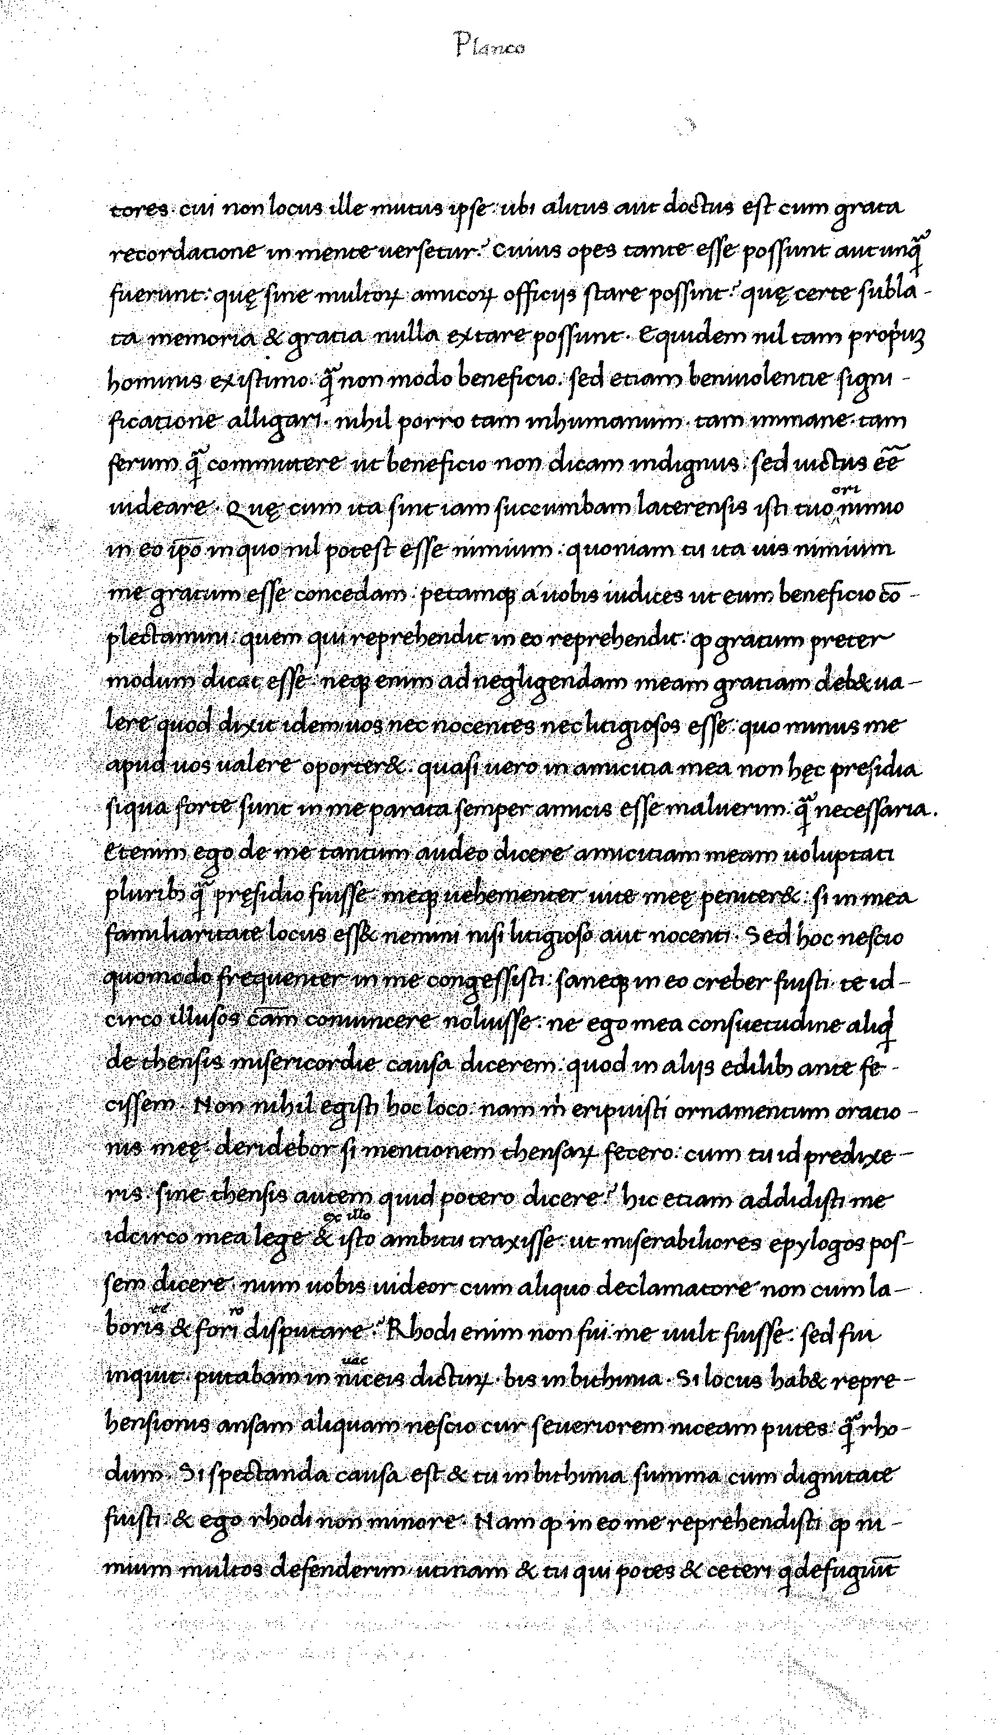 Planco
tores· cui non locus ille mutus ipse· ubi alitus aut doctus est cum grata
recordatione in mente uersetur? Cuius opes tante esse possunt aut unq̄
fuerunt: quę sine multoꝝ amicoꝝ officiis stare possint? quę certe subla-
ta memoria & gratia nulla extare possunt· Equidem nil tam propͥuꝫ
hominis existimo· q̄ non modo beneficio· sed etiam beniuolentie signi-
ficatione alligari· nihil porro tam inhumanum· tam immane· tam
ferum q̄ committere ut beneficio non dicam indignus· sed uictus eē
uideare· Quę cum ita sint iam succumbam laterensis isti tuo nimio
ori
in eo ip̄o in quo nil potest esse nimium· quoniam tu ita uis nimium
me gratum esse concedam· petamqꝫ á uobis iudices ut eum beneficio cō-
plectamini· quem qui reprehendit in eo reprehendit· ꝙ gratum preter
modum dicat esse· neqꝫ enim ad negligendam meam gratiam deb& ua-
lere quod dixit idem uos nec nocentes nec litigiosos esse· quo minus me
apud uos ualere oporter&· quasi uero in amicitia mea non hęc presidia
siqua forte sunt in me parata semper amicis esse maluerim· q̄ necessaria.
Etenim ego de me tantum audeo dicere amicitiam meam uoluptati
pluribꝫ q̄ pręsidio fuisse· meqꝫ uehementer uite meę peniter&· si in mea
familiaritate locus ess& nemini nisi litigioso aut nocenti· Sed hoc nescio
quomodo frequenter in me congessisti· saneqꝫ in eo creber fuisti· te id-
circo illusos cām conuincere noluisse· ne ego mea consuetudine aliqͥd
de thensis misericordie causa dicerem· quod in aliis edilibꝫ ante fe-
cissem· Non nihil egisti hoc loco· nam mͥ eripuisti ornamentum oratio-
nis meę· deridebor si mentionem thensaꝝ fecero· cum tu id predixe-
ris· sine thensis autem quid potero dicere? hic etiam addidisti me
ex illo
idcirco mea lege & isto ambitu traxisse· ut miserabiliores epylogos pos-
sem dicere· num uobis uideor cum aliquo declamatore non cum la-
boris & fori disputare? Rhodi enim non fui· me uult fuisse· sed fui
inquit· putabam in niceis dictuꝝ· bis in bithinia· Si locus hab& repre-
hensionis ansam aliquam nescio cur seueriorem niceam putes q̄ rho-
dum· Si spectanda causa est & tu in bithinia summa cum dignitate
fuisti· & ego rhodi non minore· Nam ꝙ in eo me reprehendisti ꝙ ni-
mium multos defenderim· utinam & tu qui potes & ceteri qͥ defugiūt